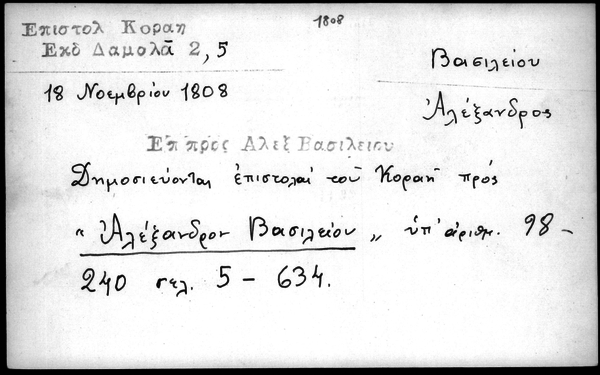 1808
Επιστολ Κοραη
Εκδ Δαμολᾶ 2,5
Βασιλείου
18 Νοεμβρίου 1808
Ἀλέξανδρος
Επ προς Αλεξ Βασιλειου
Δημοσιεύονται ἐπιστολαί τοῦ Κοραῆ πρός
" Ἀλέξανδρον Βασιλείου „ ὑπ' ἀριθμ. 98 –
240 σελ. 5 – 634.